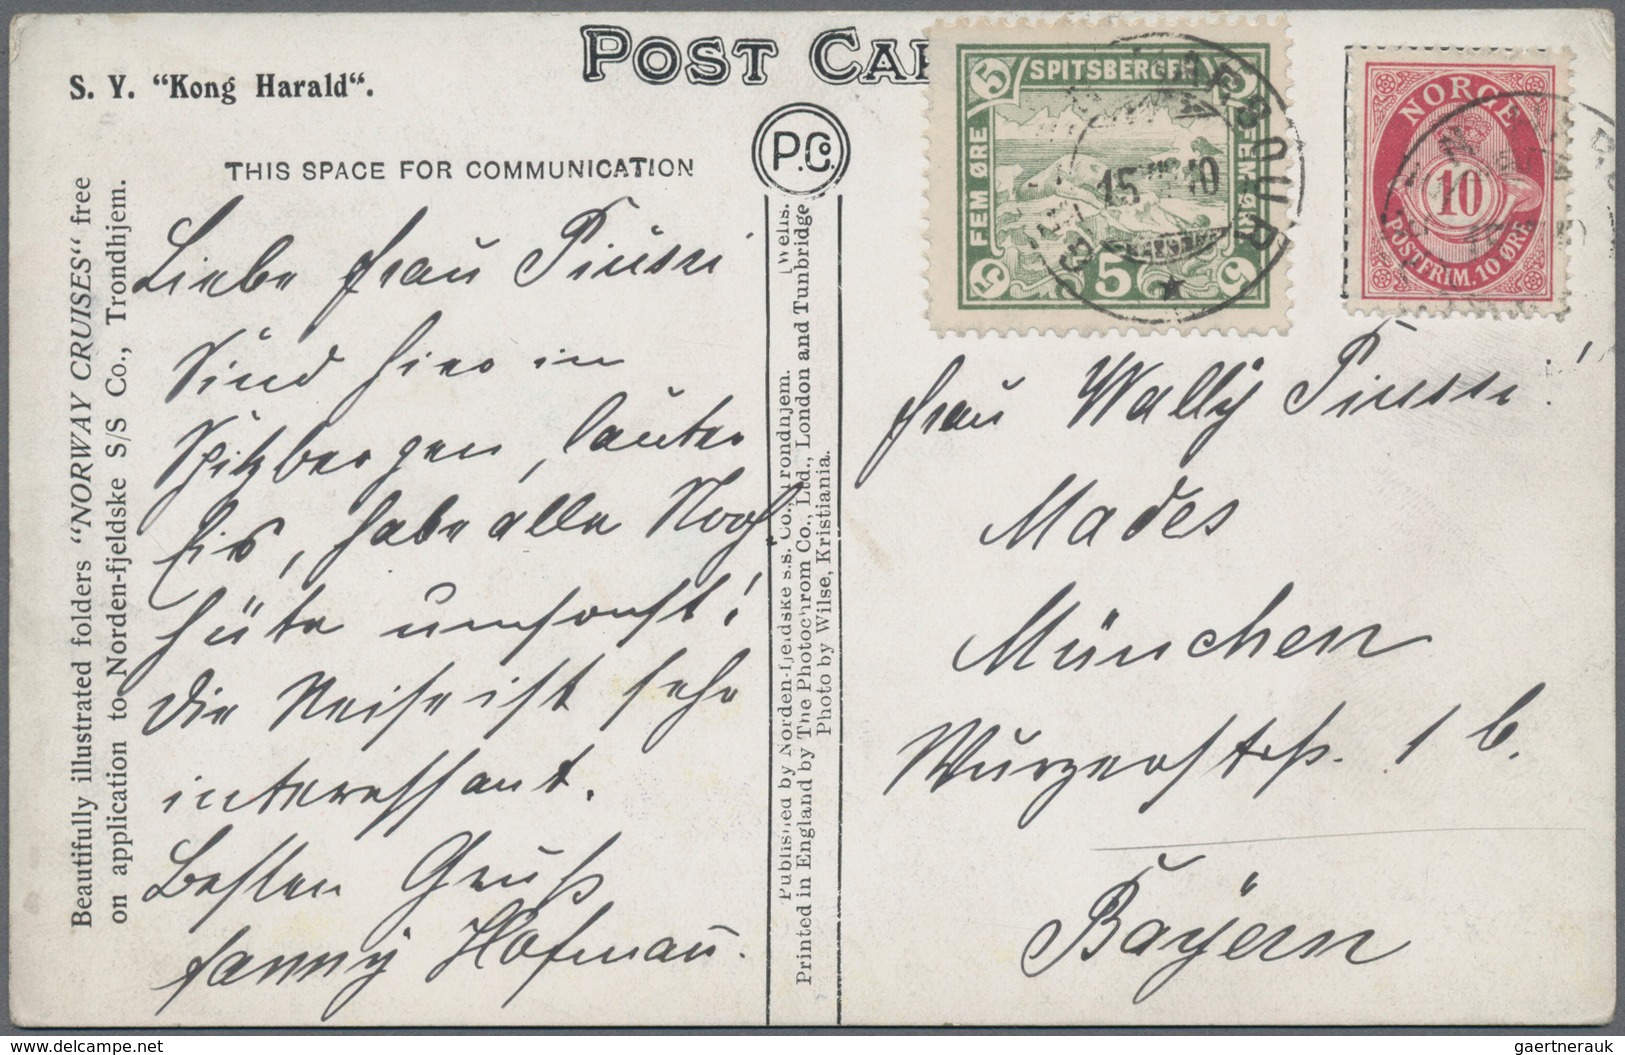 POST CA
S. Y. "Kong Harald".
THIS SPACE FOR COMMUNICATION
P.Co.
Beautifully illustrated folders "NORWAY CRUISES" free
on application to Norden-fjeldske S/S Co., Trondhjem.
Liebe Frau Piussi
Sind hier in
Spitzbergen, lauter
Eis, habe alle
Hüte umsonst!
Die Reise ist sehr
interessant.
Besten Gruß
Fanny Hofmau.
Published by Norden-fjeldske s.s. Co., Trondhjem.
Printed in England by The Photochrom Co., Ltd., London and Tunbridge Wells.
Photo by Wilse, Kristiania.
SPITSBERGEN
FEM ØRE
5
5
5
5
15 VII 10
NORGE
10
POSTFRIM. 10 ØRE
Frau Wally Piussi!
Mades
München
Wurzerstrß. 1 b.
Bayern
gaertnerauk